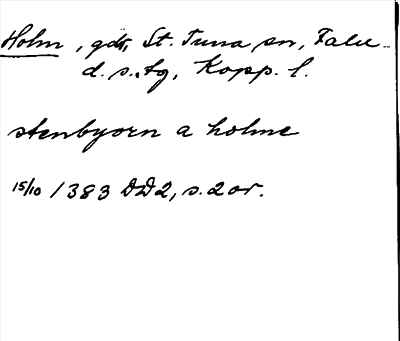 Holm, gdr, St. Tuna sn, Falu
d. s. tg, Kopp. l.
stenbyorn a holme
15/10 1383 DD2, s. 2 or.